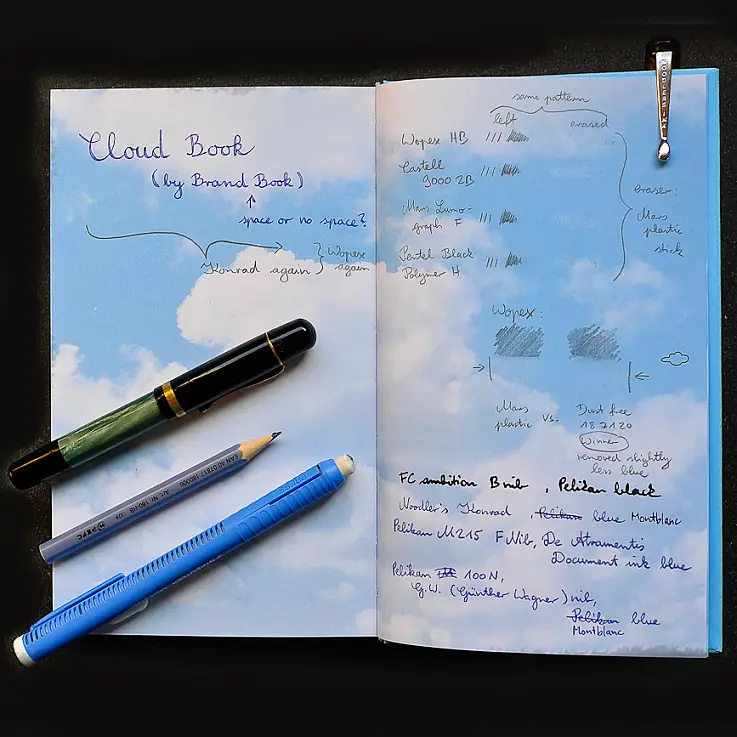 Cloud Book
(by Brand Book)
↑
space or no space?
Konrad again } Wopex
again
same pattern
left erased
Wopex HB
Castell
9000 2B
Mars Lumo-
graph F
Pentel Black
Polymer H
eraser:
Mars
plastic
stick
Wopex:
Mars
plastic
vs.
Dust free
18 7120
Winner
removed slightly
less blue
FC ambition B nib, Pelikan black
Noodler's Konrad, Pelikan blue Montblanc
Pelikan M215 F Nib, De Atramentis
Document ink blue
Pelikan 100N,
G.W. (Günther Wagner) nib,
Pelikan blue
Montblanc
NOODLERS INK
EAN 40 07817 180006
Art. Nr. 180-HB
PEFC